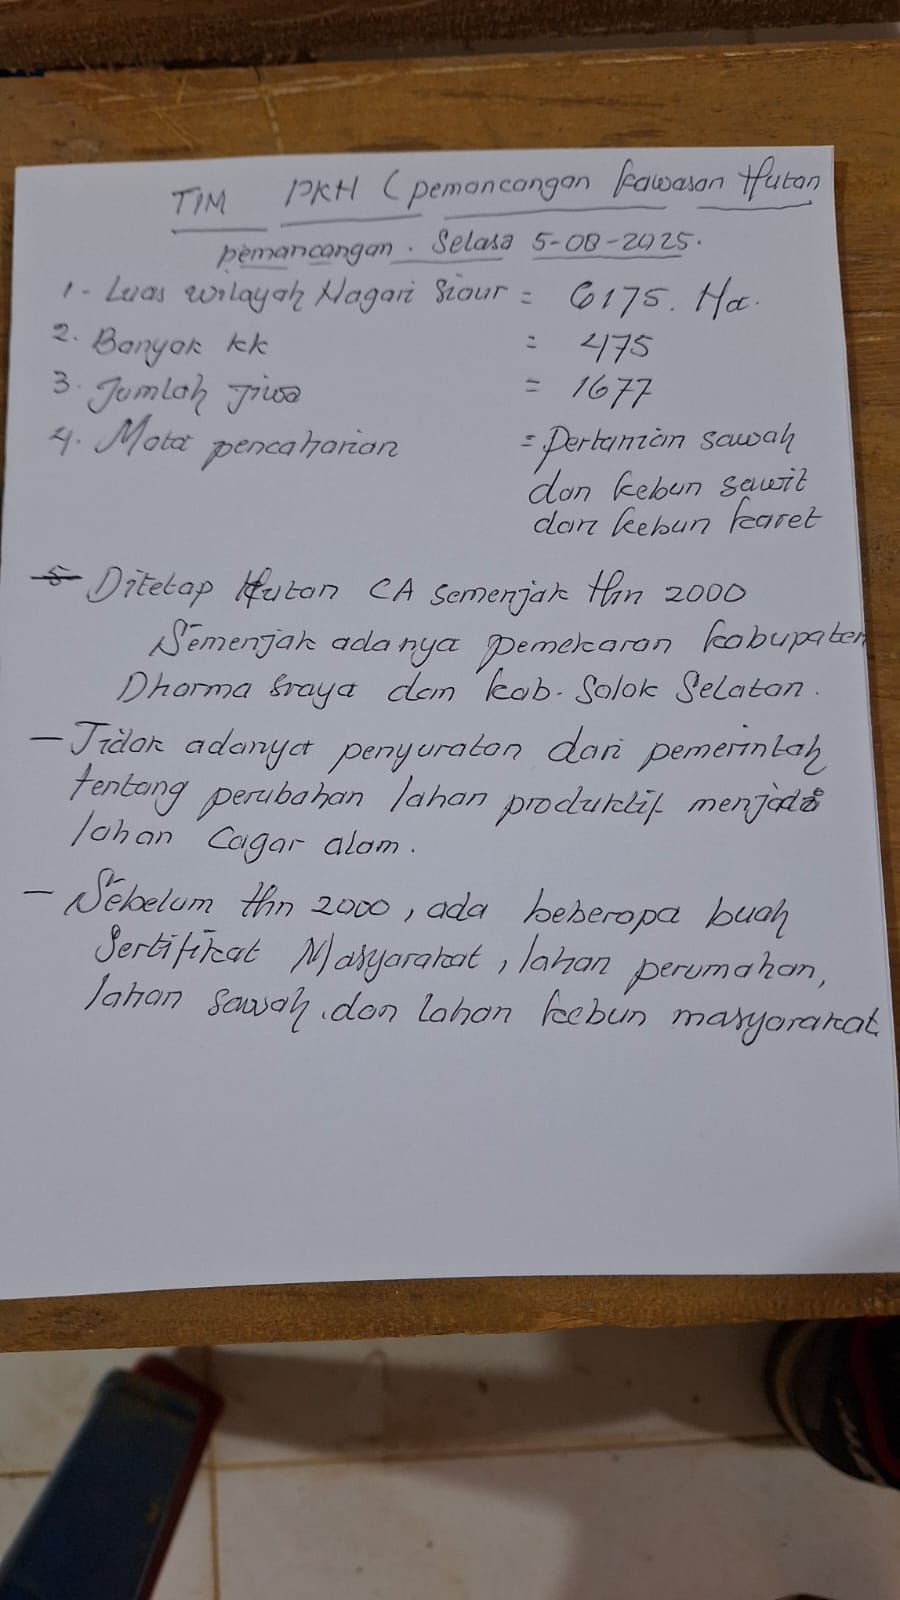 TIM PKH (pemancangan Kawasan Hutan
pemancangan. Selasa 5-08-2025.
1- Luas wilayah Nagari Siour = 6175. Ha.
2. Banyak kk = 475
3. Jumlah Jiwa = 1677
4. Mata pencaharian = Pertanian sawah
dan kebun sawit
dan kebun karet
5 Ditetap Hutan CA semenjak thn 2000
Semenjak adanya pemekaran kabupaten
Dharma sraya dan kab. Solok Selatan.
- Tidak adanya penyuratan dari pemerintah
tentang perubahan lahan produktif menjadi
lahan Cagar alam.
- Sebelum thn 2000, ada beberapa buah
Sertifikat Masyarakat, lahan perumahan,
lahan sawah, dan lahan kebun masyarakat